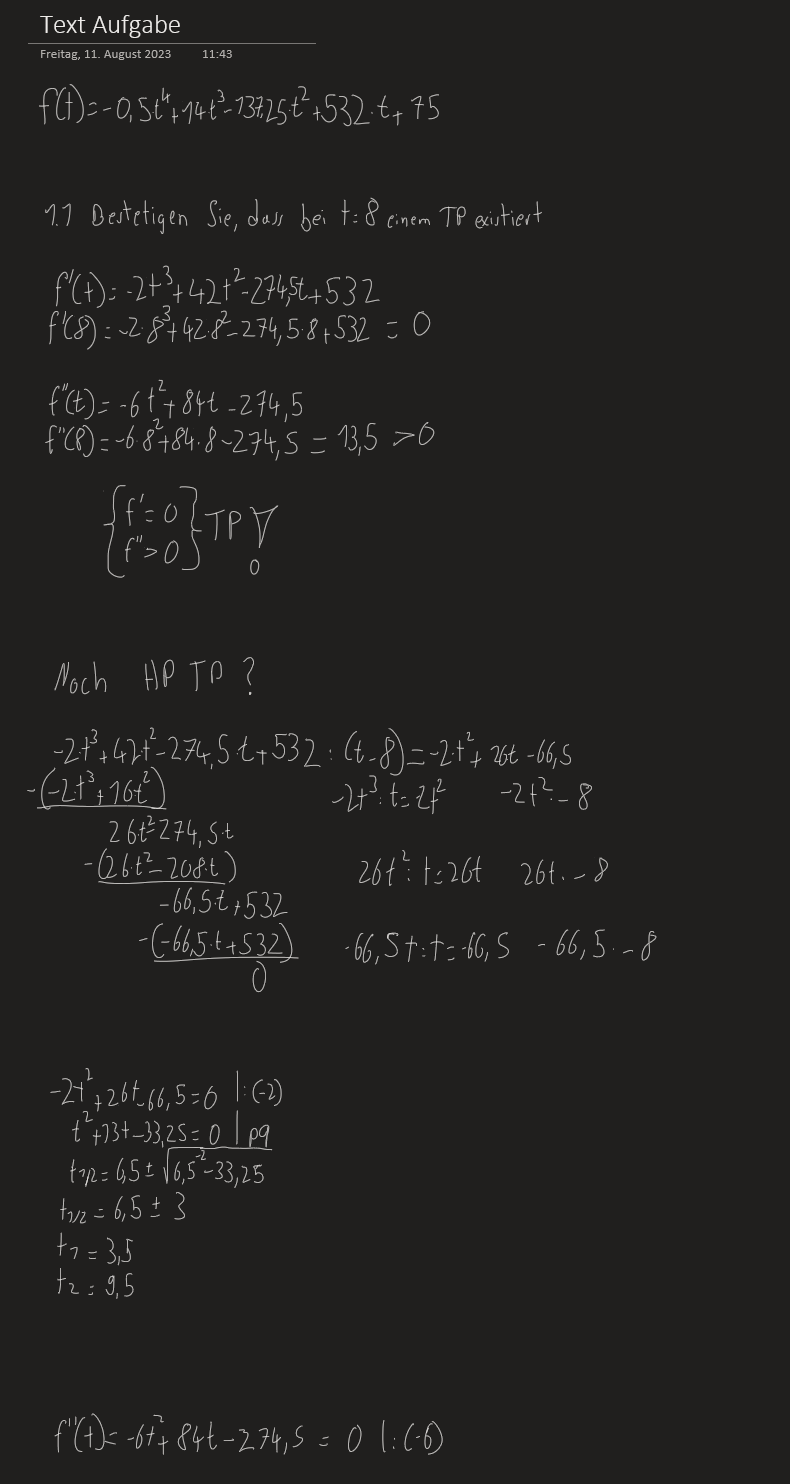 Text Aufgabe
Freitag, 11. August 2023 11:43
f(t)=-0,5t⁴+14t³-137,25·t²+532·t+75
1.1 Bestetigen Sie, dass bei t=8 einem TP existiert
f'(t)=-2t³+42t²-274,5t+532
f'(8)=-2·8³+42·8²-274,5·8+532 = 0
f''(t)=-6t²+84t-274,5
f''(8)=-6·8²+84·8-274,5 = 13,5 >0
{f'=0} TP
{f''>0}
Noch HP TP ?
-2·t³+42t²-274,5·t+532 : (t-8)=-2·t²+26t-66,5
-(-2t³+16t²) -2t³:t=2t² -2t²·-8
26t²-274,5·t
-(26·t²-208·t) 26t²:t=26t 26t·-8
-66,5·t+532
-(-66,5·t+532) -66,5t:t=-66,5 -66,5·-8
0
-2t²+26t-66,5=0 |:(-2)
t²+13t-33,25=0 | pq
t1/2=6,5±√6,5⁻²-33,25
t1/2=6,5±3
t1=3,5
t2=9,5
f''(t)=-6t²+84t-274,5 = 0 |:(-6)